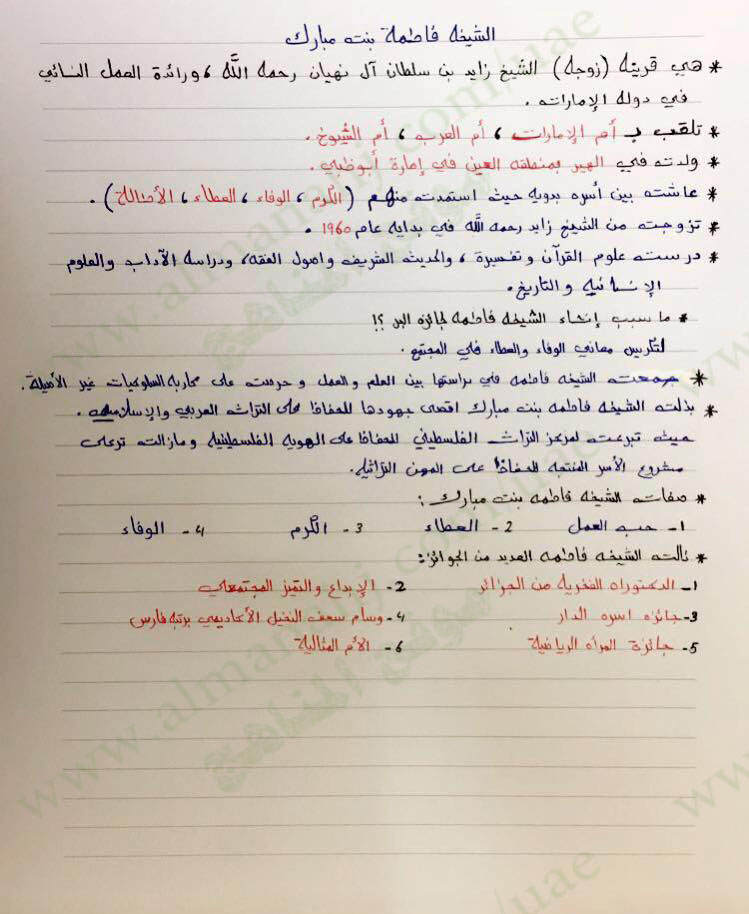 الشيخه فاطمة بنت مبارك
* هي قرينه (زوجه) الشيخ زايد بن سلطان آل نهيان رحمه الله ، ورائدة العمل النسائي
في دوله الإمارات .
* تلقب بـ أم الإمارات ، أم العرب ، أم الشيوخ .
* ولدت في الهير بمنطقه العين في إمارة أبوظبي .
* عاشت بين أسره بدويه حيث استمدت منهم (الكرم ، الوفاء ، العطاء ، الأصالة) .
* تزوجت من الشيخ زايد رحمه الله في بدايه عام 1960 .
* درست علوم القرآن وتفسيرة ، والحديث الشريف واصول الفقه، ودراسه الآداب والعلوم
الإنسانيه والتاريخ .
* ما سبب إنشاء الشيخه فاطمه لجائزه البر ؟!
لتكريس معاني الوفاء والعطاء في المجتمع .
* جمعت الشيخه فاطمه في دراستها بين العلم والعمل و حرصت على محاربه السلوكيات غير الأصيلة .
* بذلت الشيخه فاطمه بنت مبارك اقصى جهودها للحفاظ على التراث العربي والإسلامي .
حيث تبرعت لمركز التراث الفلسطيني للحفاظ على الهويه الفلسطينيه ومازالت ترعى
مشروع الأسر المنتجه للحفاظ على المهن التراثيه.
* صفات الشيخه فاطمه بنت مبارك :
1- حب العمل 2- العطاء 3- الكرم 4- الوفاء
* نالت الشيخه فاطمه العديد من الجوائز:
1- الدكتوراه الفخرية من الجزائر 2- الإبداع والتميز المجتمعي
3- جائزه اسره الدار 4- وسام سعف النخيل الأكاديمي برتبه فارس
5- جائزة المرأه الرياضية 6- الأم المثالية
www.almanahj.com/uae
موقع المناهج